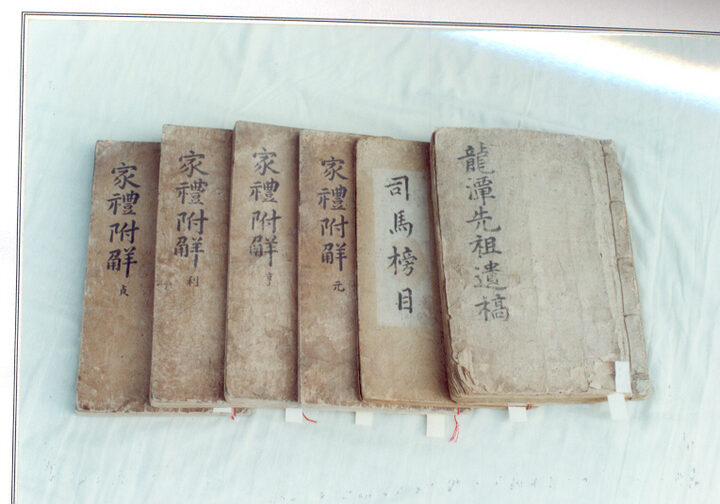 龍潭先祖遺稿
司馬榜目
家禮附觧 元
家禮附觧 亨
家禮附觧 利
家禮附觧 貞